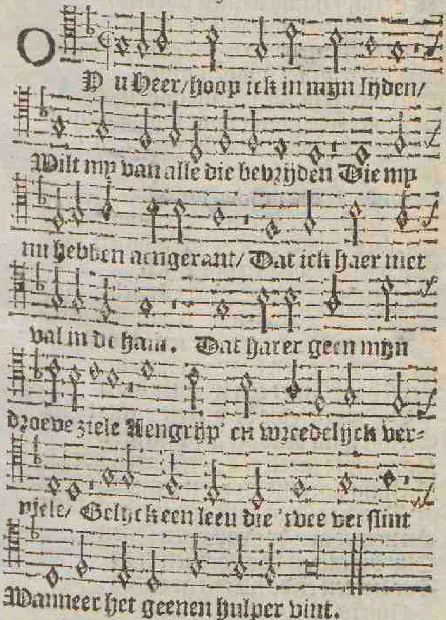 OP u Heer/hoop ick in mijn lyden/
Wilt my van alle die bevrijden Die my
nu hebben aengerant/ Dat ick haer niet
val in de hant. Dat harer geen mijn
droeve ziele Aengrijp' en wreedelijck ver-
niele/ Gelijck een leeu die 'twee verslint
Wanneer het geenen hulper vint.